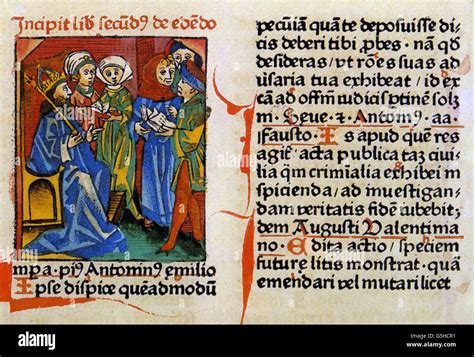 Incipit lib secūdꝰ de edēdo
mp a. piꝰ Antominꝰ emilio
Ipse dispice quēadmodū
pecuīam quā te deposuisse di
cis deberi tibi ꝓbes. nā qđ
desideras / vt rōes suas ad
usaria tua exhibeat / id ex cā
ad offm̄ iudicis ptinēt solꝫ
m. Seue. ⁊ Antomꝰ aa.
fausto. Is apud quē res
agiť acta publica tā ciui
lia qm̄ crimīalia exhibei in
spicienda / ad inuestigan
dam veritatis fidē iubebit.
dem Augusti Valentinia
no. Edita actio / speciem
future litis monstrat / quā
emendari vel mutari licet
alamy stock photo
G5HCR1
www.alamy.com